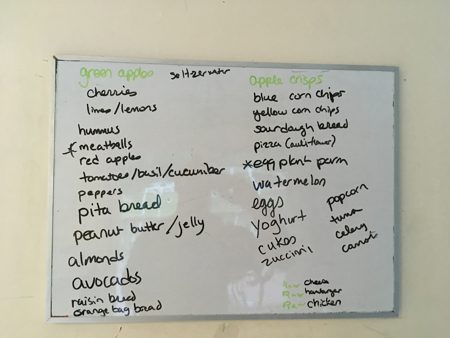 green apples
seltzer water
cherries
limes/lemons
hummus
* meatballs
red apples
tomatoes/basil/cucumber
peppers
pita bread
peanut butter/jelly
almonds
avocados
raisin bread
orange bag bread
apple crisps
blue corn chips
yellow corn chips
sourdough bread
pizza (cauliflower)
*egg plant parm
watermelon
eggs
yoghurt
cukes
zuccinni
popcorn
tuna
celery
carrots
Raw cheese
Raw hamburger
Raw chicken